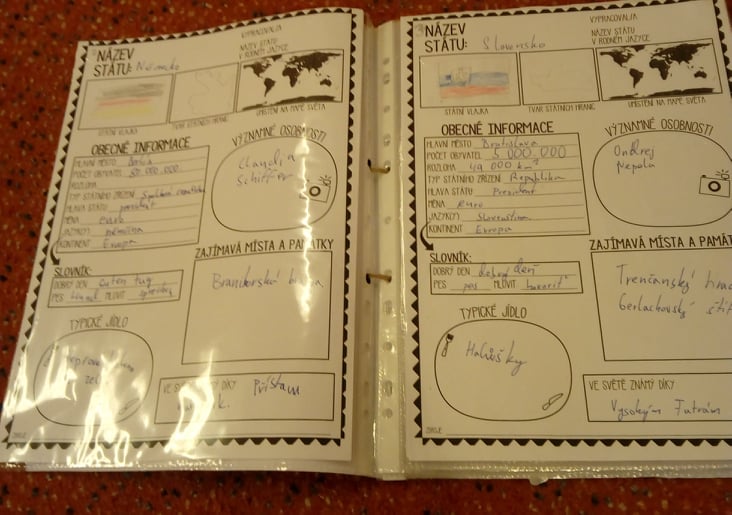 VYPRACOVAL/A
NÁZEV
STÁTU: Německo
NÁZEV STÁTU
V RODNÉM JAZYCE
STÁTNÍ VLAJKA
TVAR STÁTNÍCH HRANIC
UMÍSTĚNÍ NA MAPĚ SVĚTA
OBECNÉ INFORMACE
HLAVNÍ MĚSTO Berlín
POČET OBYVATEL 80 000 000
ROZLOHA
TYP STÁTNÍHO ZŘÍZENÍ
HLAVA STÁTU prezident
MĚNA euro
JAZYK(Y) němčina
KONTINENT Evropa
VÝZNAMNÉ OSOBNOSTI
Claudia
Schiffer
SLOVNÍK:
DOBRÝ DEN guten tag
PES Hund MLUVIT sprechen
ZAJÍMAVÁ MÍSTA A PAMÁTKY
Brandorská brána
TYPICKÉ JÍDLO
VE SVĚTĚ ZNÁMÝ DÍKY
Přístam
ZDROJE
VYPRACOVAL/A
NÁZEV
STÁTU: Slovensko
NÁZEV STÁTU
V RODNÉM JAZYCE
STÁTNÍ VLAJKA
TVAR STÁTNÍCH HRANIC
UMÍSTĚNÍ NA MAPĚ SVĚTA
OBECNÉ INFORMACE
HLAVNÍ MĚSTO Bratislava
POČET OBYVATEL 5 000 000
ROZLOHA 49 000 km²
TYP STÁTNÍHO ZŘÍZENÍ Republika
HLAVA STÁTU Prezident
MĚNA euro
JAZYK(Y) Slovenština
KONTINENT Evropa
VÝZNAMNÉ OSOBNOSTI
Ondrej
Nepela
SLOVNÍK:
DOBRÝ DEN dobrý deň
PES pes MLUVIT hovoriť
ZAJÍMAVÁ MÍSTA A PAMÁT
Trenčanský hrad
Gerlachovský štít
TYPICKÉ JÍDLO
Halušky
VE SVĚTĚ ZNÁMÝ DÍKY
Vysokým Tatrám
ZDROJE